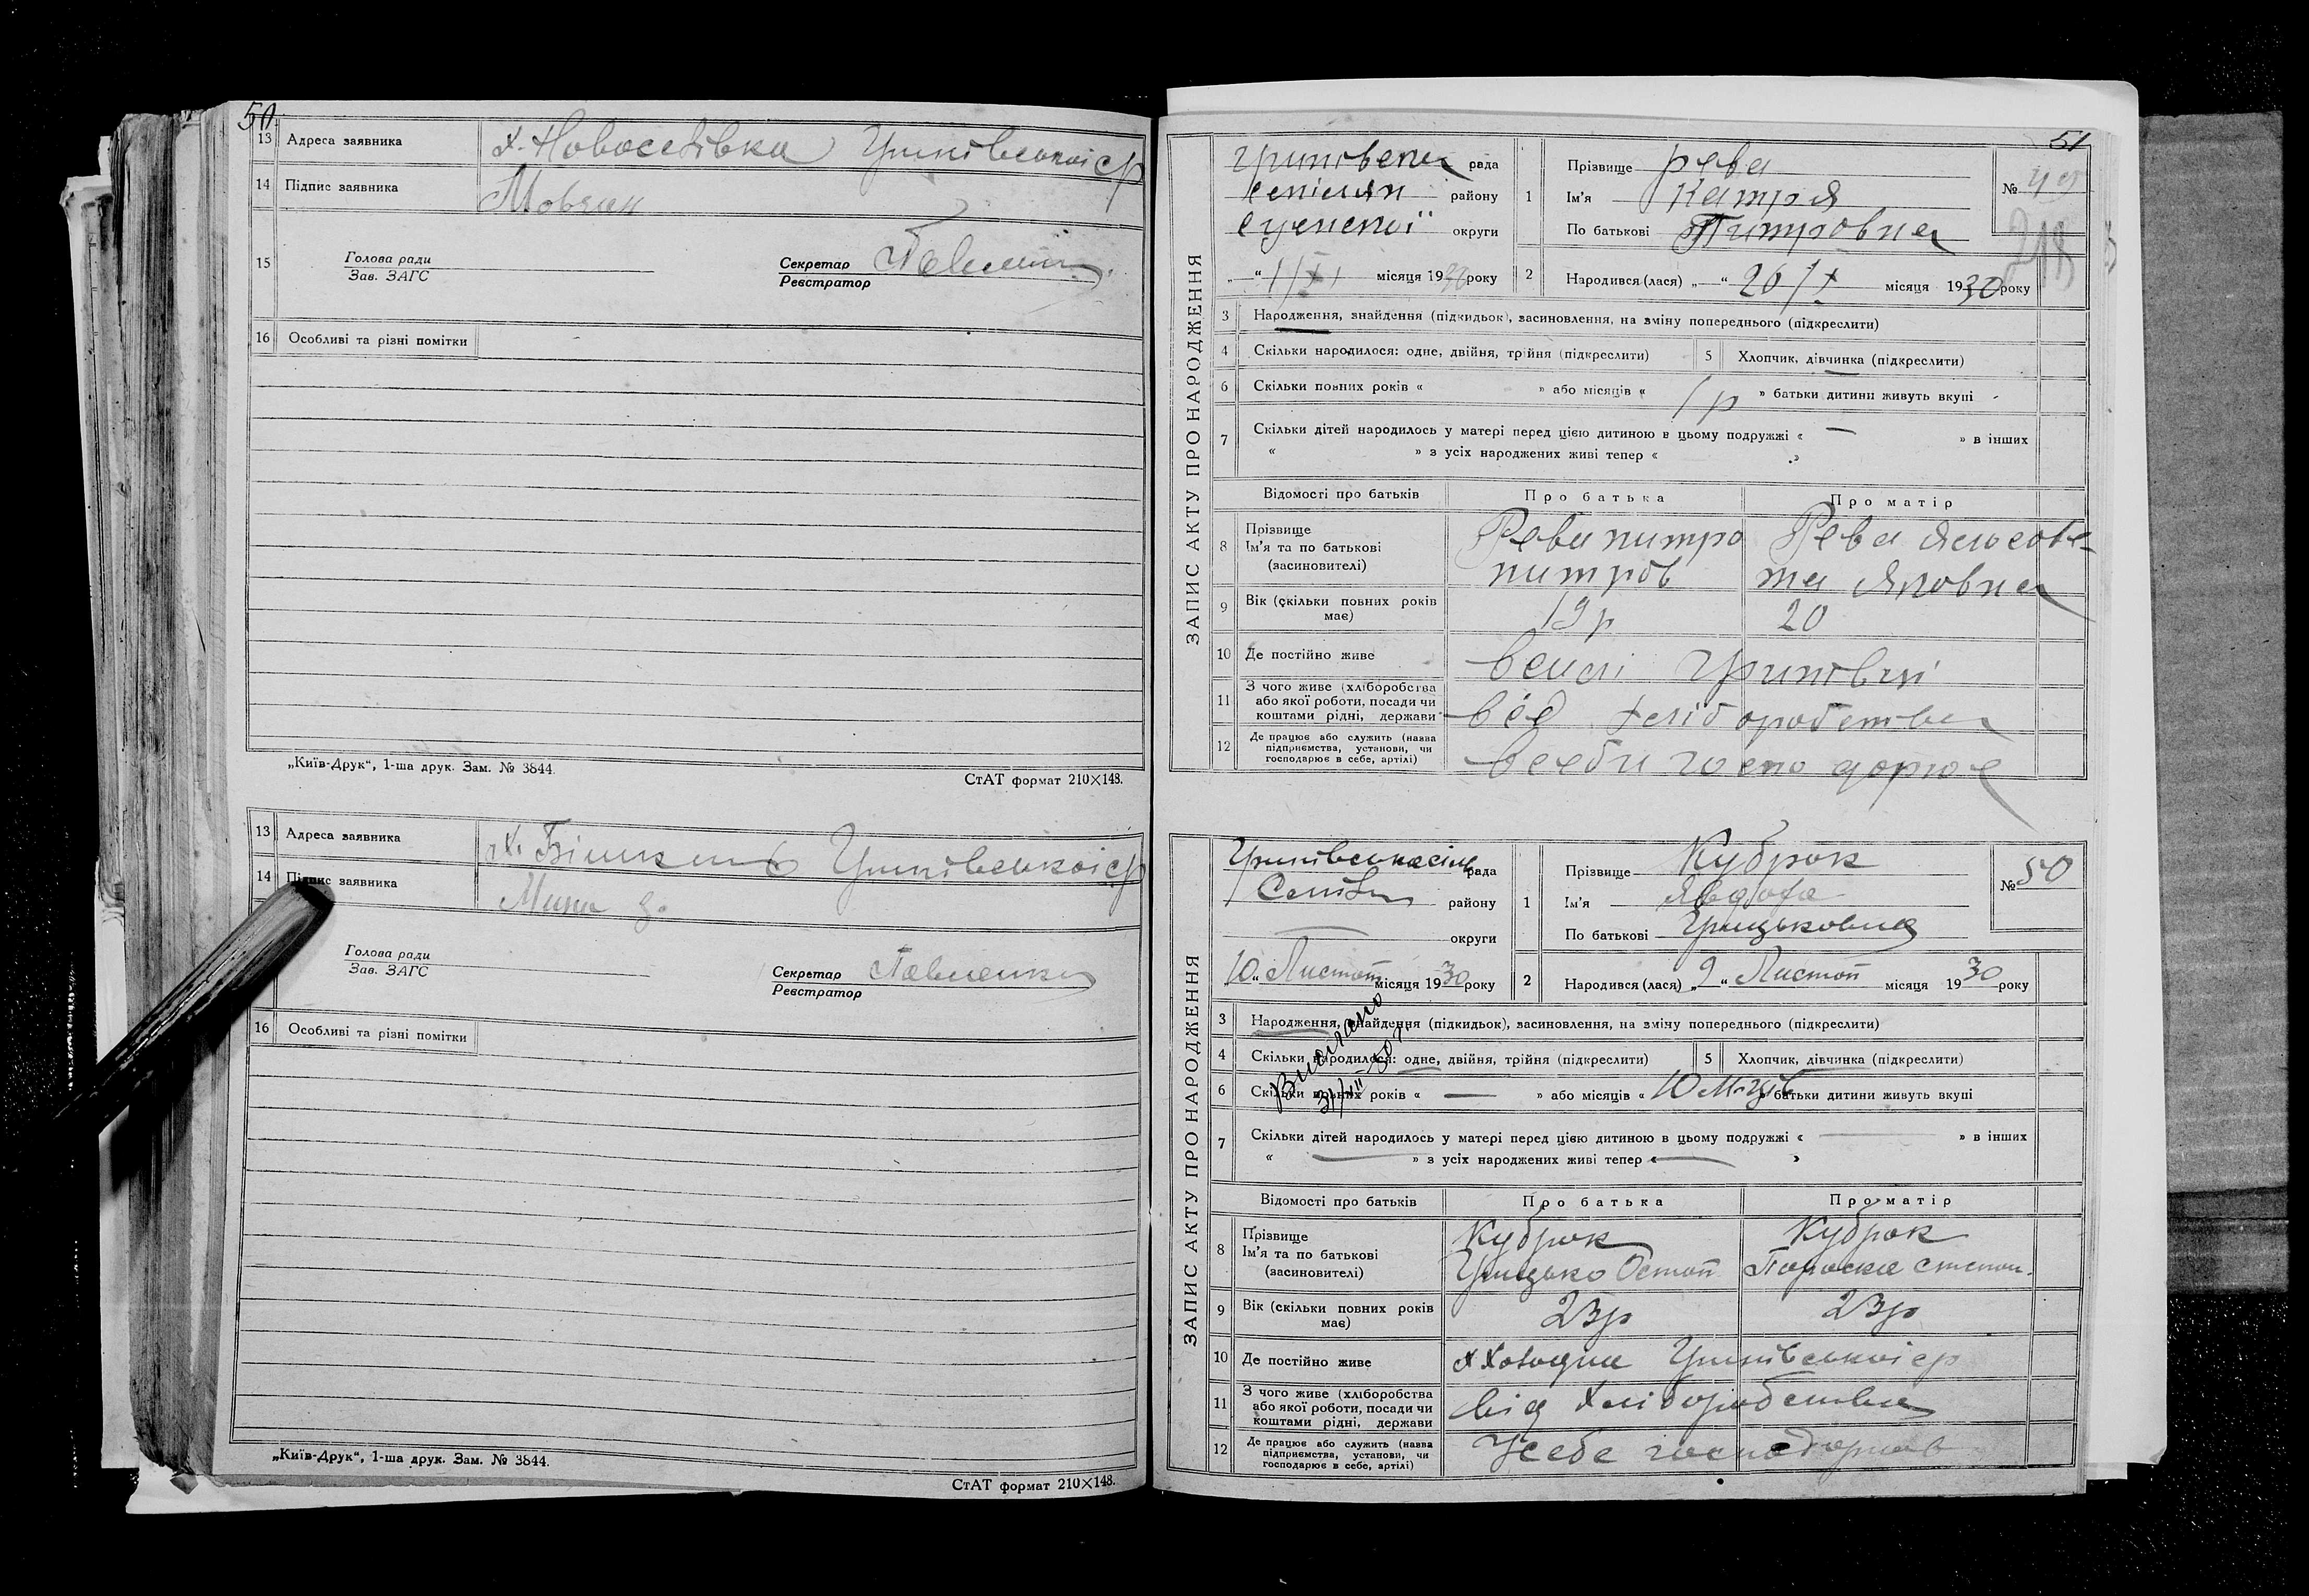 50
13 Адреса заявника х. Новоселівка Грипівської с р
14 Підпис заявника Мовчан
15 Голова ради
Зав. ЗАГС
Секретар
Реєстратор
16 Особливі та різні помітки
„Київ-Друк“, 1-ша друк. Зам. № 3844.
СтАТ формат 210×148.
13 Адреса заявника х. Грипівської с р
14 Підпис заявника
Голова ради
Зав. ЗАГС
Секретар Павленко
Реєстратор
16 Особливі та різні помітки
„Київ-Друк“, 1-ша друк. Зам. № 3844.
СтАТ формат 210×148.
51
ЗАПИС АКТУ ПРО НАРОДЖЕННЯ
рада
району
округи
місяця 1930 року
1 Прізвище рева
Ім'я Катря
По батькові Питровна
№ 49
218
2 Народився (лася) „—“ 26/X місяця 1930 року
3 Народження, знайдення (підкидьок), засиновлення, на зміну попереднього (підкреслити)
4 Скільки народилося: одне, двійня, трійня (підкреслити) 5 Хлопчик, дівчинка (підкреслити)
6 Скільки повних років « » або місяців « 1 р » батьки дитини живуть вкупі
7 Скільки дітей народилось у матері перед цією дитиною в цьому подружжі « — » в інших
« » з усіх народжених живі тепер « »
Відомості про батьків Про батька Про матір
8 Прізвище
Ім'я та по батькові
(засиновителі)
Рева питро
питров
Рева Ялисове-
та Яковна
9 Вік (скільки повних років має) 19 р 20
10 Де постійно живе в селі Грипівці
11 З чого живе (хліборобства або якої роботи, посади чи коштами рідні, держави від хліборобства
12 Де працює або служить (назва підприємства, установи, чи господарює в себе, артілі) в себи господорює
ЗАПИС АКТУ ПРО НАРОДЖЕННЯ
Грипівська сіль рада
району
округи
10 „ Листоп місяця 1930 року
1 Прізвище Кубрак
Ім'я Явдоха
По батькові Грицьковна
№ 50
2 Народився (лася) „9“ Листоп місяця 1930 року
3 Народження, знайдення (підкидьок), засиновлення, на зміну попереднього (підкреслити)
4 Скільки народилося: одне, двійня, трійня (підкреслити) 5 Хлопчик, дівчинка (підкреслити)
6 Скільки повних років « — » або місяців « 10 М-ців батьки дитини живуть вкупі
7 Скільки дітей народилось у матері перед цією дитиною в цьому подружжі « — » в інших
« — » з усіх народжених живі тепер « — »
Відомості про батьків Про батька Про матір
8 Прізвище
Ім'я та по батькові
(засиновителі)
Кубрак
Грицько Остап
Кубрак
Параска степан.
9 Вік (скільки повних років має) 23 р 23 р
10 Де постійно живе х Холодна Грипівської с р
11 З чого живе (хліборобства або якої роботи, посади чи коштами рідні, держави від хліборобства
12 Де працює або служить (назва підприємства, установи, чи господарює в себе, артілі) У себе господарюють